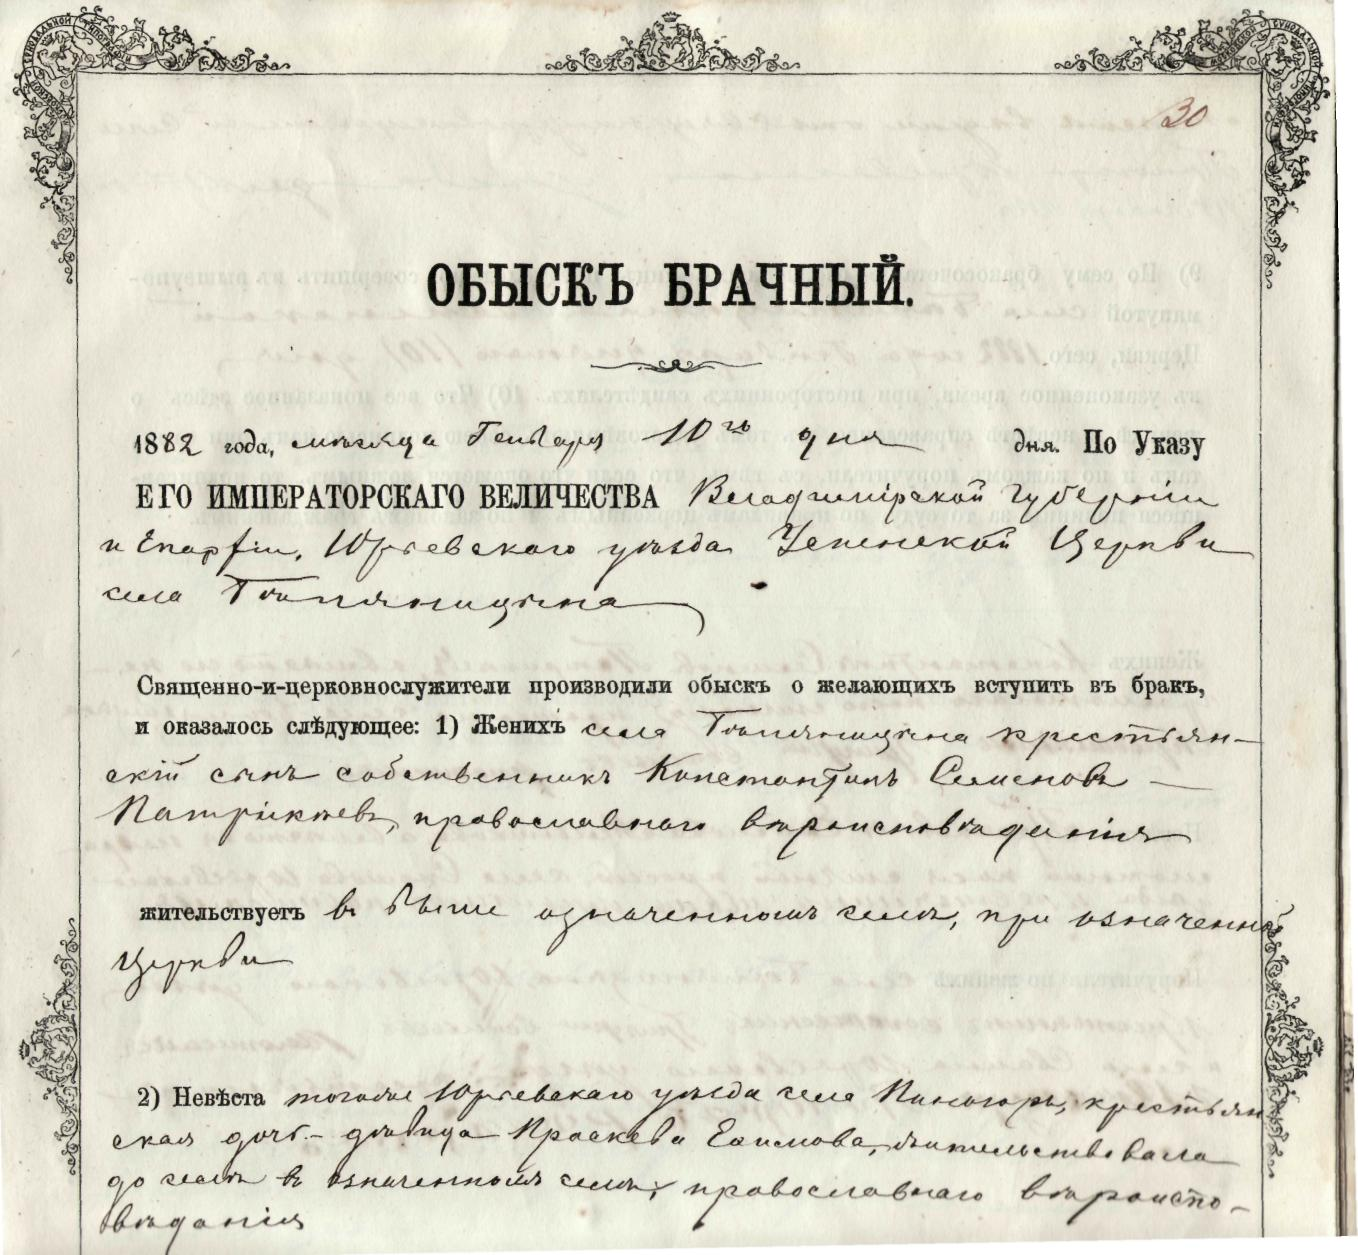 30
ОБЫСКЪ БРАЧНЫЙ.
1882 года, мѣсяца Генваря 10го дня дня. По Указу
ЕГО ИМПЕРАТОРСКАГО ВЕЛИЧЕСТВА Владимірской губерніи
и Епархіи, Юрьевскаго уѣзда Успенской Церкви
села
Священно-и-церковнослужители производили обыскъ о желающихъ вступить въ бракъ,
и оказалось слѣдующее: 1) Женихъ села крестьян-
скій сынъ собственникъ Константинъ Семеновъ
Патрикѣевъ, православнаго вѣроисповѣданія
жительствуетъ въ выше означенномъ селѣ, при означенной
Церкви
2) Невѣста тогоже Юрьевскаго уѣзда села крестьян
ская дочь - дѣвица Праскева Ефимова, жительствовала
до селѣ въ означенномъ селѣ, православнаго вѣроиспо-
вѣданія